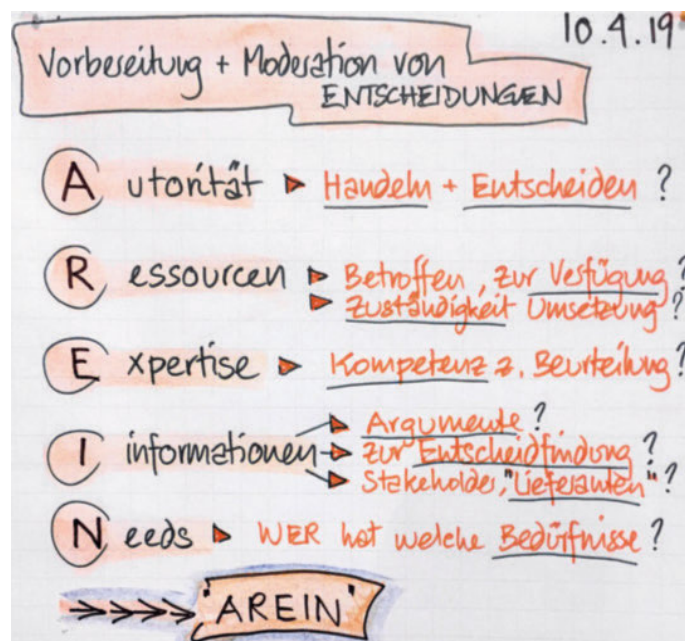 10.4.19
Vorbereitung + Moderation von
ENTSCHEIDUNGEN
Autorität ▶ Handeln + Entscheiden ?
Ressourcen ▶ Betroffen, zur Verfügung ?
▶ Zuständigkeit Umsetzung ?
Expertise ▶ Kompetenz z. Beurteilung ?
▶ Argumente ?
I informationen ▶ zur Entscheidfindung ?
▶ Stakeholder, "Lieferanten" ?
Needs ▶ WER hat welche Bedürfnisse ?
"AREIN"